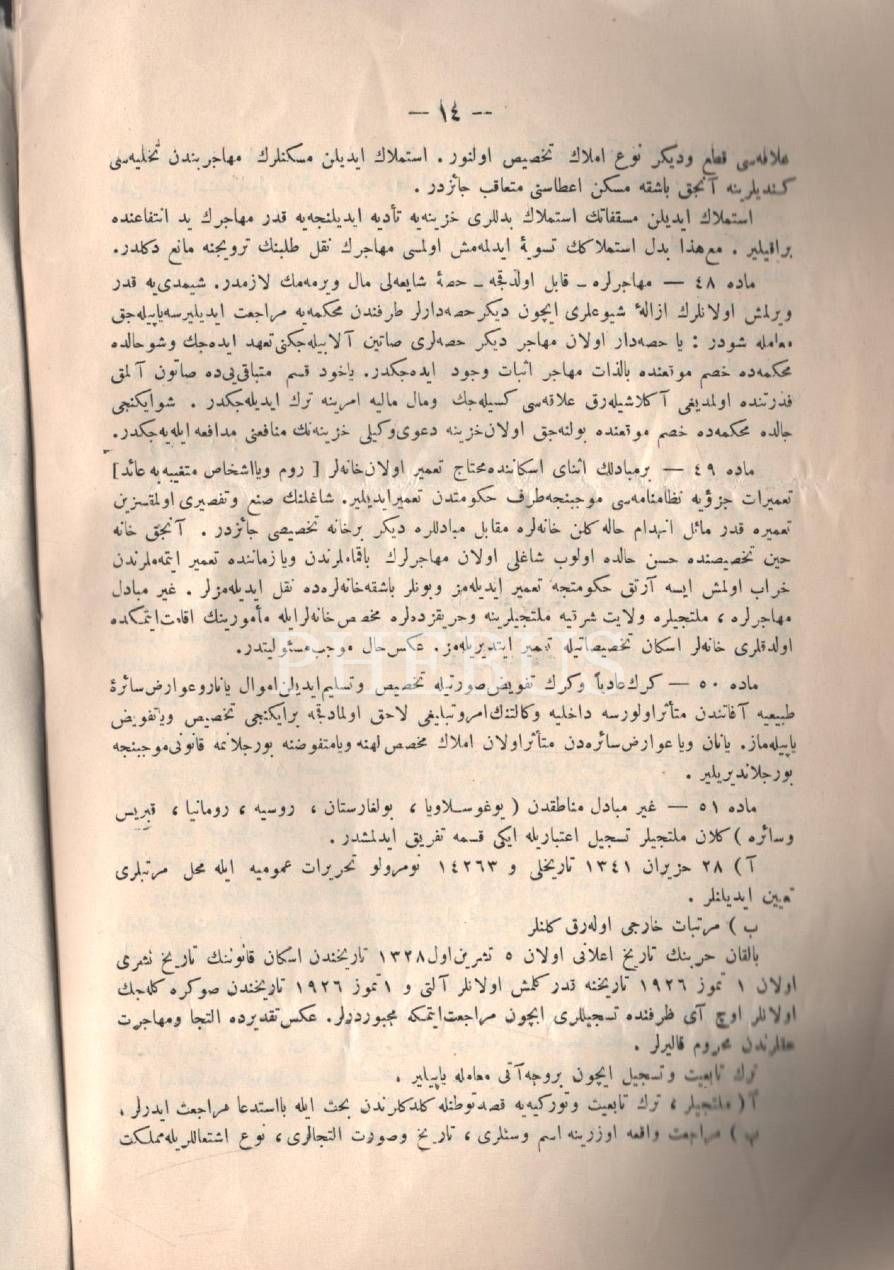 — ١٤ —
علاقه‌سی قطع ودیكر نوع املاك تخصیص اولنور . استملاك ایدیلن مسكنلرك مهاجربندن تخلیه‌سی
كندیلرینه آنجق باشقه مسكن اعطاسنی متعاقب جائزدر .
استملاك ایدیلن مسقفاتك استملاك بدللری خزینه‌یه تأدیه ایدیلنجه‌یه قدر مهاجرك ید انتفاعنده
براقیلیر . مع‌هذا بدل استملاكك تسویهٔ ایدلمه‌مش اولمسی مهاجرك نقل طلبنك ترویجنه مانع دكلدر.
ماده ٤٨ — مهاجرلره ـ قابل اولدقجه ـ حصهٔ شایعه‌لی مال ویرمه‌مك لازمدر. شیمدی‌یه قدر
ویرلمش اولانلرك ازالهٔ شیوعلری ایچون دیكرحصه‌دارلر طرفندن محكمه‌یه مراجعت ایدیلیرسه‌یاپیله‌جق
معامله شودر : یا حصه‌دار اولان مهاجر دیكر حصه‌لری صاتین آلابیله‌جكنی‌تعهد ایده‌جك وشوحالده
محكمه‌ده خصم موقعنده بالذات مهاجر اثبات وجود ایده‌جكدر. یاخود قسم متباقی‌یی‌ده صاتون آلمق
قدرتنده اولمدیغی آكلاشیله‌رق علاقه‌سی كسیله‌جك ومال مالیه امرینه ترك ایدیله‌جكدر . شوایكنجی
حالده محكمه‌ده خصم موقعنده بولنه‌جق اولان‌خزینه دعوی‌وكیلی خزینه‌نك منافعنی مدافعه‌ایله‌یه‌جكدر.
ماده ٤٩ — برمبادلك اثنای اسكاننده‌محتاج تعمیر اولان‌خانه‌لر [ روم ویااشخاص متغیبه‌یه‌عائد]
تعمیرات جزؤیه نظامنامه‌سی موجبنجه‌طرف حكومتدن تعمیرایدیلیر. شاغلنك صنع وتقصیری اولمقسزین
تعمیره قدر مائل انهدام حاله‌كلن خانه‌لره مقابل مبادللره دیكر برخانه تخصیصی جائزدر . آنجق خانه
حین تخصیصنده حسن حالده اولوب شاغلی اولان مهاجرلرك باقمامه‌لرندن ویازماننده تعمیر ایتمه‌ملرندن
خراب اولمش ایسه آرتق حكومتجه تعمیر ایدیله‌مز وبونلر باشقه‌خانه‌لره‌ده نقل ایدیله‌مزلر . غیر مبادل
مهاجرلره ، ملتجیلره ولایت شرقیه ملتجیلرینه وحریقزده‌لره مخصص‌خانه‌لرایله مأمورینك اقامت‌ایتمكده
اولدقلری خانه‌لر اسكان تخصیصاتیله تعمیر ایتدیریله‌مز. عكس‌حال موجب‌مسئولیتدر.
ماده ٥٠ — كرك‌عادیاً وكرك تفویض‌صورتیله تخصیص وتسلیم‌ایدیلن‌اموال یانارو‌عوارض‌سائرهٔ
طبیعیه آفاتندن متأثراولورسه داخلیه وكالتنك‌امروتبلیغی لاحق اولمادقجه برایكنجی تخصیص ویاتفویض
یاپیله‌ماز. یانان ویاعوارض‌سائره‌دن متأثراولان املاك مخصص‌لهنه ویامتفوضنه بورجلانمه قانونی‌موجبنجه
بورجلاندیریلیر .
ماده ٥١ — غیر مبادل مناطقدن ( یوغوسلاویا ، بولغارستان ، روسیه ، رومانیا ، قبریس
وسائره ) كلان ملتجیلر تسجیل اعتباریله ایكی قسمه تفریق ایدلمشدر.
آ) ٢٨ حزیران ١٣٤١ تاریخلی و ١٤٢٦٣ نومرولو تحریرات عمومیه ایله محل مرتبلری
تعیین ایدیلنلر .
ب ) مرتبات خارجی اوله‌رق كلنلر
بالقان حربنك تاریخ اعلانی اولان ٥ تشرین‌اول١٣٢٨ تاریخندن اسكان قانوننك تاریخ نشری
اولان ١ تموز ١٩٢٦ تاریخنه قدر كلمش اولانلر آلتی و ١تموز ١٩٢٦ تاریخندن صوكره كله‌جك
اولانلر اوچ آی ظرفنده تسجیللری ایچون مراجعت‌ایتمكه مجبوردرلر. عكس‌تقدیرده التجا ومهاجرت
حقلرندن محروم قالیرلر .
ترك تابعیت وتسجیل ایچون بروجه‌آتی معامله یاپیلیر .
آ) ملتجیلر ، ترك تابعیت وتوركیه‌یه قصدتوطنله كلدكلرندن بحث ایله بااستدعا مراجعت ایدرلر .
ب ) مراجعت واقعه اوزرینه اسم وسنلری ، تاریخ وصورت التجالری ، نوع اشتغاللریله‌مملكت
PHEBUS